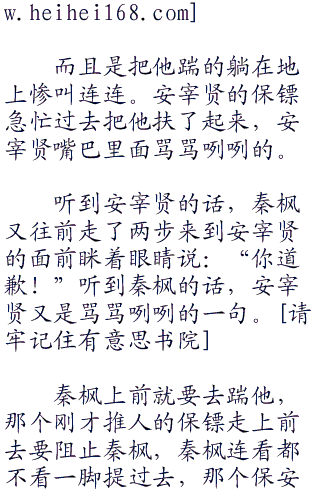 w.heihei168.com]
而且是把他踹的躺在地
上惨叫连连。安宰贤的保镖
急忙过去把他扶了起来，安
宰贤嘴巴里面骂骂咧咧的。
听到安宰贤的话，秦枫
又往前走了两步来到安宰贤
的面前眯着眼睛说：“你道
歉！”听到秦枫的话，安宰
贤又是骂骂咧咧的一句。[请
牢记住有意思书院]
秦枫上前就要去踹他，
那个刚才推人的保镖走上前
去要阻止秦枫，秦枫连看都
不看一脚提过去，那个保安